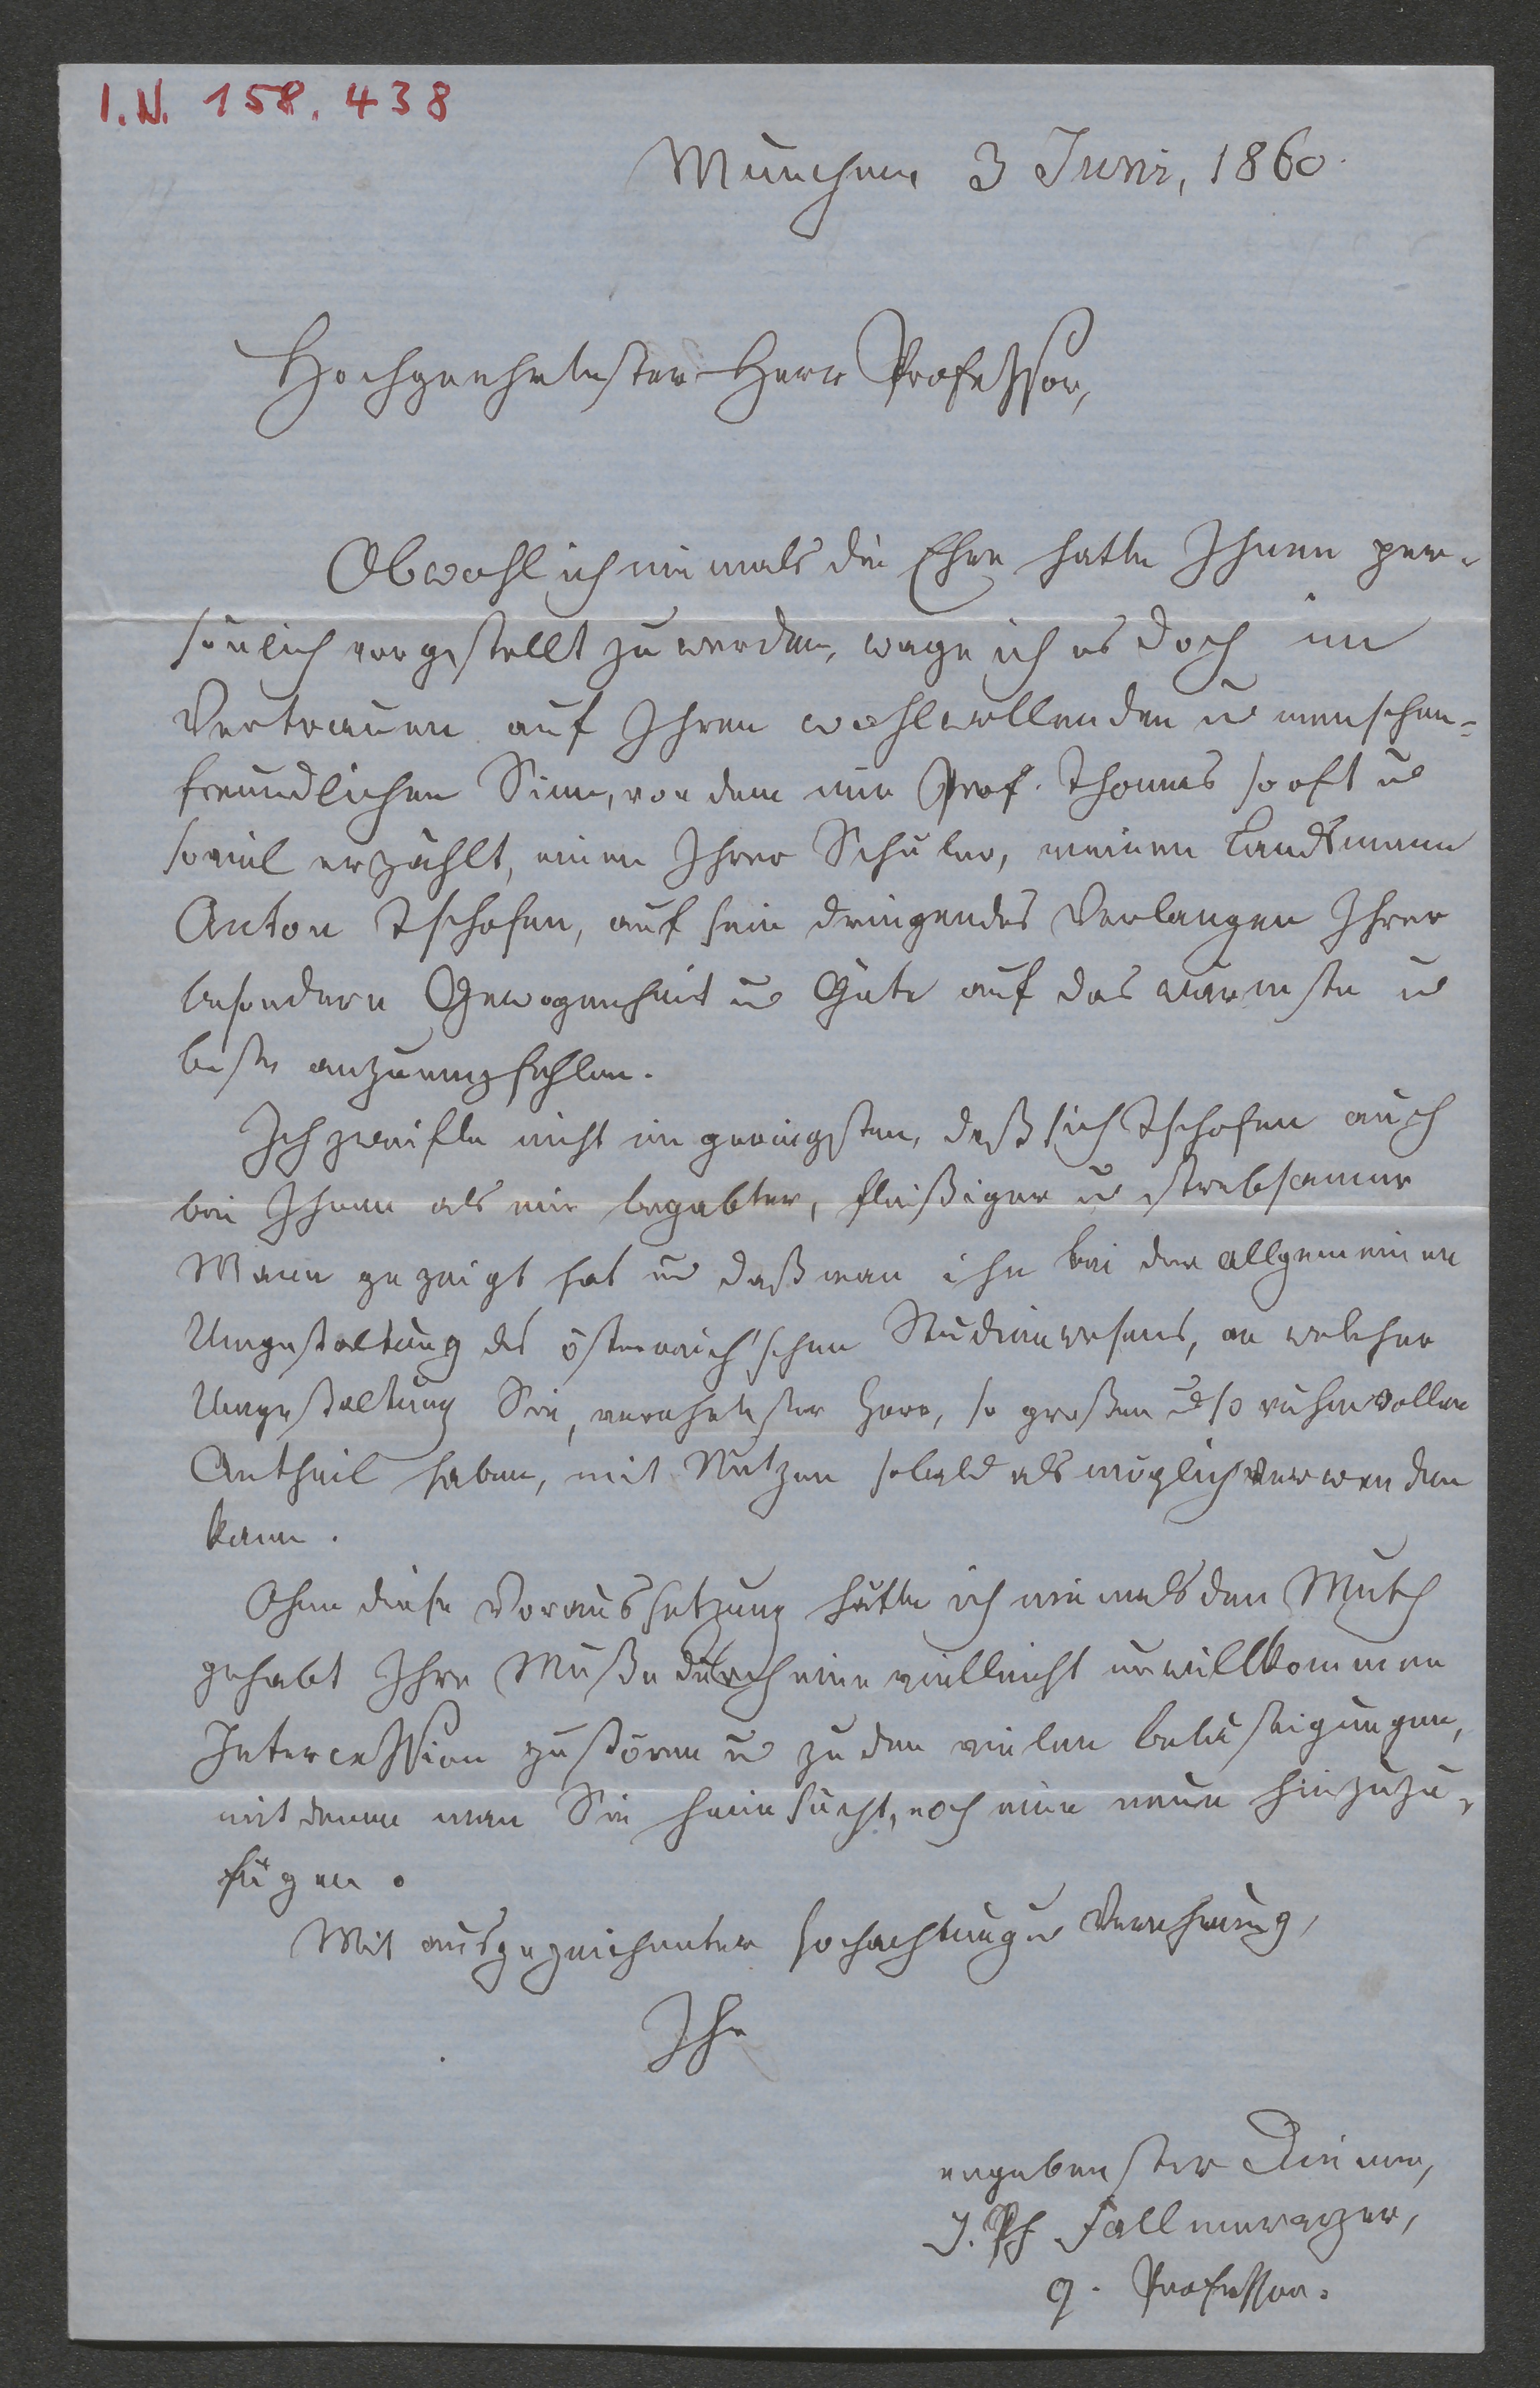 I.N. 158.438
München 3 Juni, 1860.
Hochgeehrtester Herr Professor,
Obwohl ich niemals die Ehre hatte Ihnen per-
sönlich vorgestellt zu werden, wage ich es doch im
Vertrauen auf Ihren wohlwollenden u menschen-
freundlichen Sinn, von dem mir Prof. Thomas so oft u
soviel erzählt, einen Ihrer Schüler, meinen Landsmann
Anton Tschofen, auf sein dringendes Verlangen Ihrer
besondern Gewogenheit u Güte auf das wärmste u
beste anzuempfehlen.
Ich zweifle nicht im geringsten, daß sich Tschofen auch
bei Ihnen als ein begabter, fleißiger u strebsamer
Mann gezeigt hat u daß man ihn bei der allgemeinen
Umgestaltung des österreich'schen Studienwesens, an welcher
Umgestaltung Sie, verehrtester Herr, so großen u so ruhmvollen
Antheil haben, mit Nutzen sobald als möglich verwenden
kann.
Ohne diese Voraussetzung hätte ich niemals den Muth
gehabt Ihre Muße durch eine vielleicht unwillkommene
Intercession zu stören u zu den vielen Belästigungen,
mit denen man Sie heimsucht, noch eine neue hinzuzu-
fügen.
Mit ausgezeichneter Hochachtung u Verehrung,
Ihr
ergebenster Diener,
J. Ph Fallmerayer,
q. Professor.